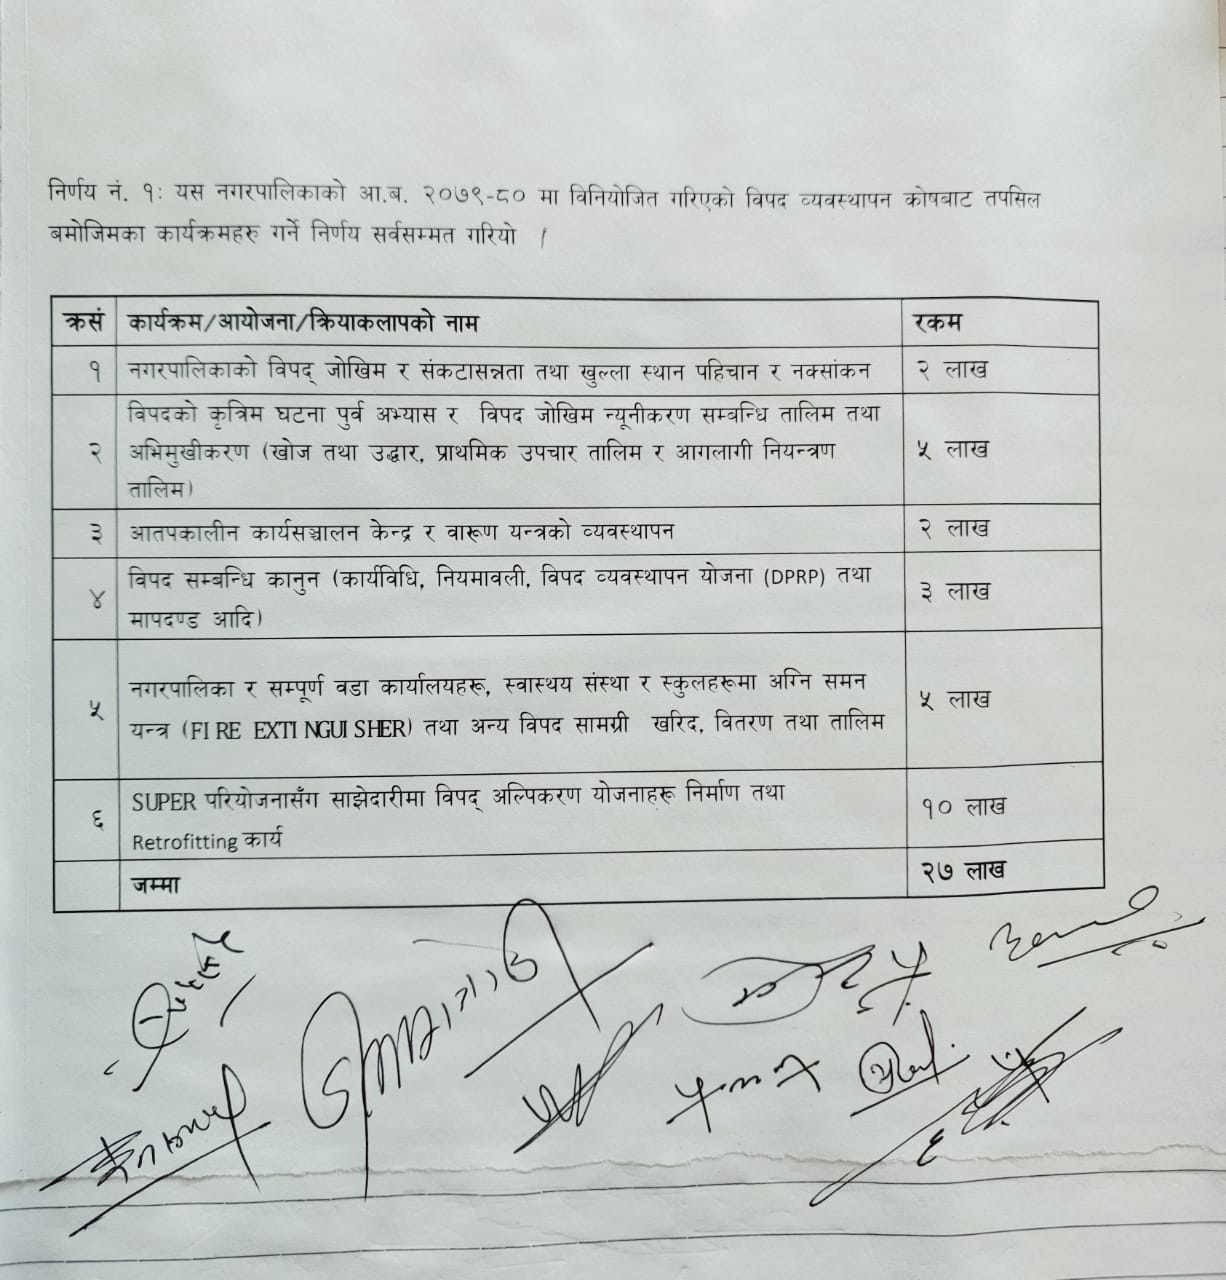 निर्णय नं. १: यस नगरपालिकाको आ.ब. २०७९-८० मा विनियोजित गरिएको विपद व्यवस्थापन कोषबाट तपसिल
बमोजिमका कार्यक्रमहरु गर्ने निर्णय सर्वसम्मत गरियो ।
क्रसं कार्यक्रम/आयोजना/क्रियाकलापको नाम रकम
१ नगरपालिकाको विपद् जोखिम र संकटासन्नता तथा खुल्ला स्थान पहिचान र नक्सांकन २ लाख
विपदको कृत्रिम घटना पुर्व अभ्यास र विपद जोखिम न्यूनीकरण सम्बन्धि तालिम तथा
२ अभिमुखीकरण (खोज तथा उद्धार, प्राथमिक उपचार तालिम र आगलागी नियन्त्रण ५ लाख
तालिम)
३ आतपकालीन कार्यसञ्चालन केन्द्र र वारूण यन्त्रको व्यवस्थापन २ लाख
विपद सम्बन्धि कानुन (कार्यविधि, नियमावली, विपद व्यवस्थापन योजना (DPRP) तथा
४ मापदण्ड आदि) ३ लाख
नगरपालिका र सम्पूर्ण वडा कार्यालयहरू, स्वास्थय संस्था र स्कुलहरूमा अग्नि समन
५ यन्त्र (FIRE EXTINGUISHER) तथा अन्य विपद सामग्री खरिद, वितरण तथा तालिम ५ लाख
SUPER परियोजनासँग साझेदारीमा विपद् अल्पिकरण योजनाहरू निर्माण तथा
६ Retrofitting कार्य १० लाख
जम्मा २७ लाख